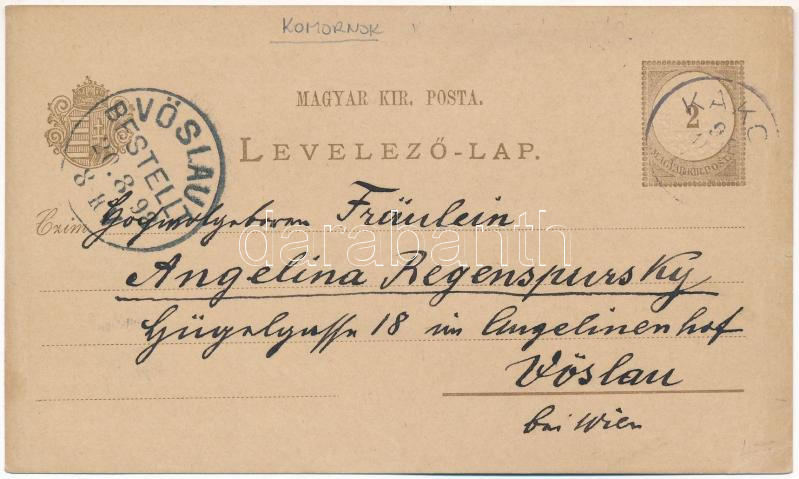 KOMORNOK
MAGYAR KIR. POSTA.
LEVELEZŐ-LAP.
2
MAGYAR KIR. POSTA
VÖSLAU
BESTELLT
20.8.98
Czim
Hochwolgeboren Fräulein
Angelina Regenspursky
Hügelgasse 18 im Angelinenhof
Vöslau
bei Wien
darabanth